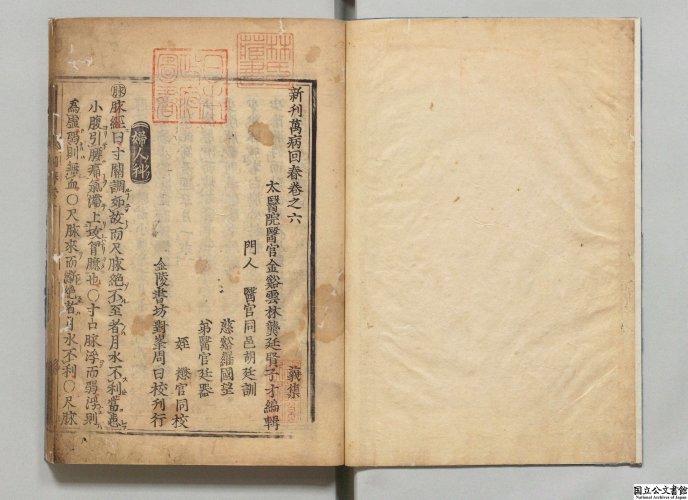 新刊萬病回春卷之六
太醫院醫官金谿雲林龔廷賢子才編輯
門人 醫官同邑胡廷訓
慈谿羅國望
弟醫官廷器
姪 懋官同校
金陵書坊對峯周曰校刊行
婦人科
脉 脉經曰寸關調如故而尺脉絕不至者月水不利當患
小腹引腰痛氣滯上攻胷臆也〇寸口脉浮而弱浮則
爲虛弱則無血〇尺脉來而斷絕者月水不利〇尺脉
林氏藏書
日本政府圖書
義集
国立公文書館
National Archives of Japan